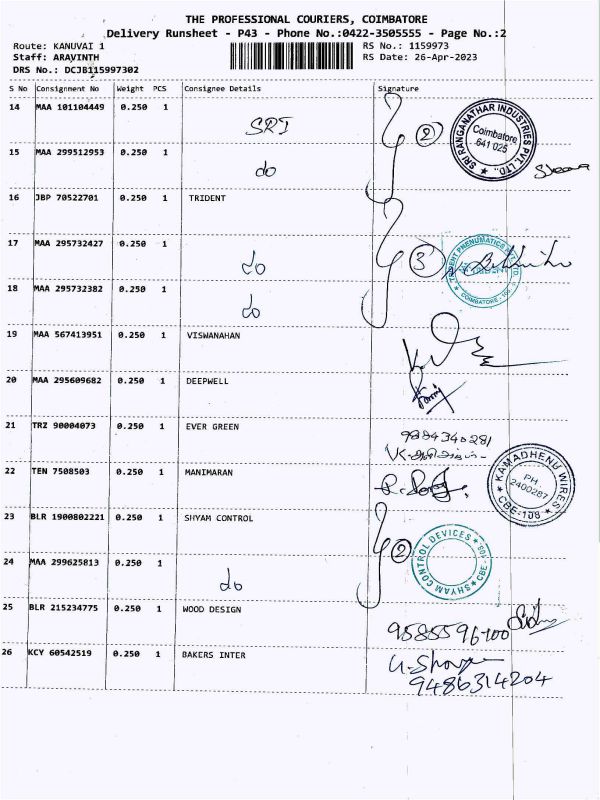 THE PROFESSIONAL COURIERS, COIMBATORE
Delivery Runsheet - P43 - Phone No.:0422-3505555 - Page No.:2
Route: KANUVAI 1 RS No.: 1159973
Staff: ARAVINTH RS Date: 26-Apr-2023
DRS No.: DCJB115997302
S No Consignment No Weight PCS Consignee Details Signature
14 MAA 101104449 0.250 1 SRI
2
SRI RANGANATHAR INDUSTRIES PVT. LTD.,
Coimbatore
641 025
15 MAA 299512953 0.250 1 do
16 JBP 70522701 0.250 1 TRIDENT
17 MAA 295732427 0.250 1 do
3
TRIDENT PNEUMATICS PVT. LTD
COIMBATORE
18 MAA 295732382 0.250 1 do
19 MAA 567413951 0.250 1 VISWANAHAN
20 MAA 295609682 0.250 1 DEEPWELL
21 TRZ 90004073 0.250 1 EVER GREEN
9884340281
22 TEN 7508503 0.250 1 MANIMARAN
KAMADHENU WIRES
PH
2400287
CBE-108
23 BLR 1900802221 0.250 1 SHYAM CONTROL
2
SHYAM CONTROL DEVICES
CBE
24 MAA 299625813 0.250 1 do
25 BLR 215234775 0.250 1 WOOD DESIGN
9585596100
26 KCY 60542519 0.250 1 BAKERS INTER
9486314204